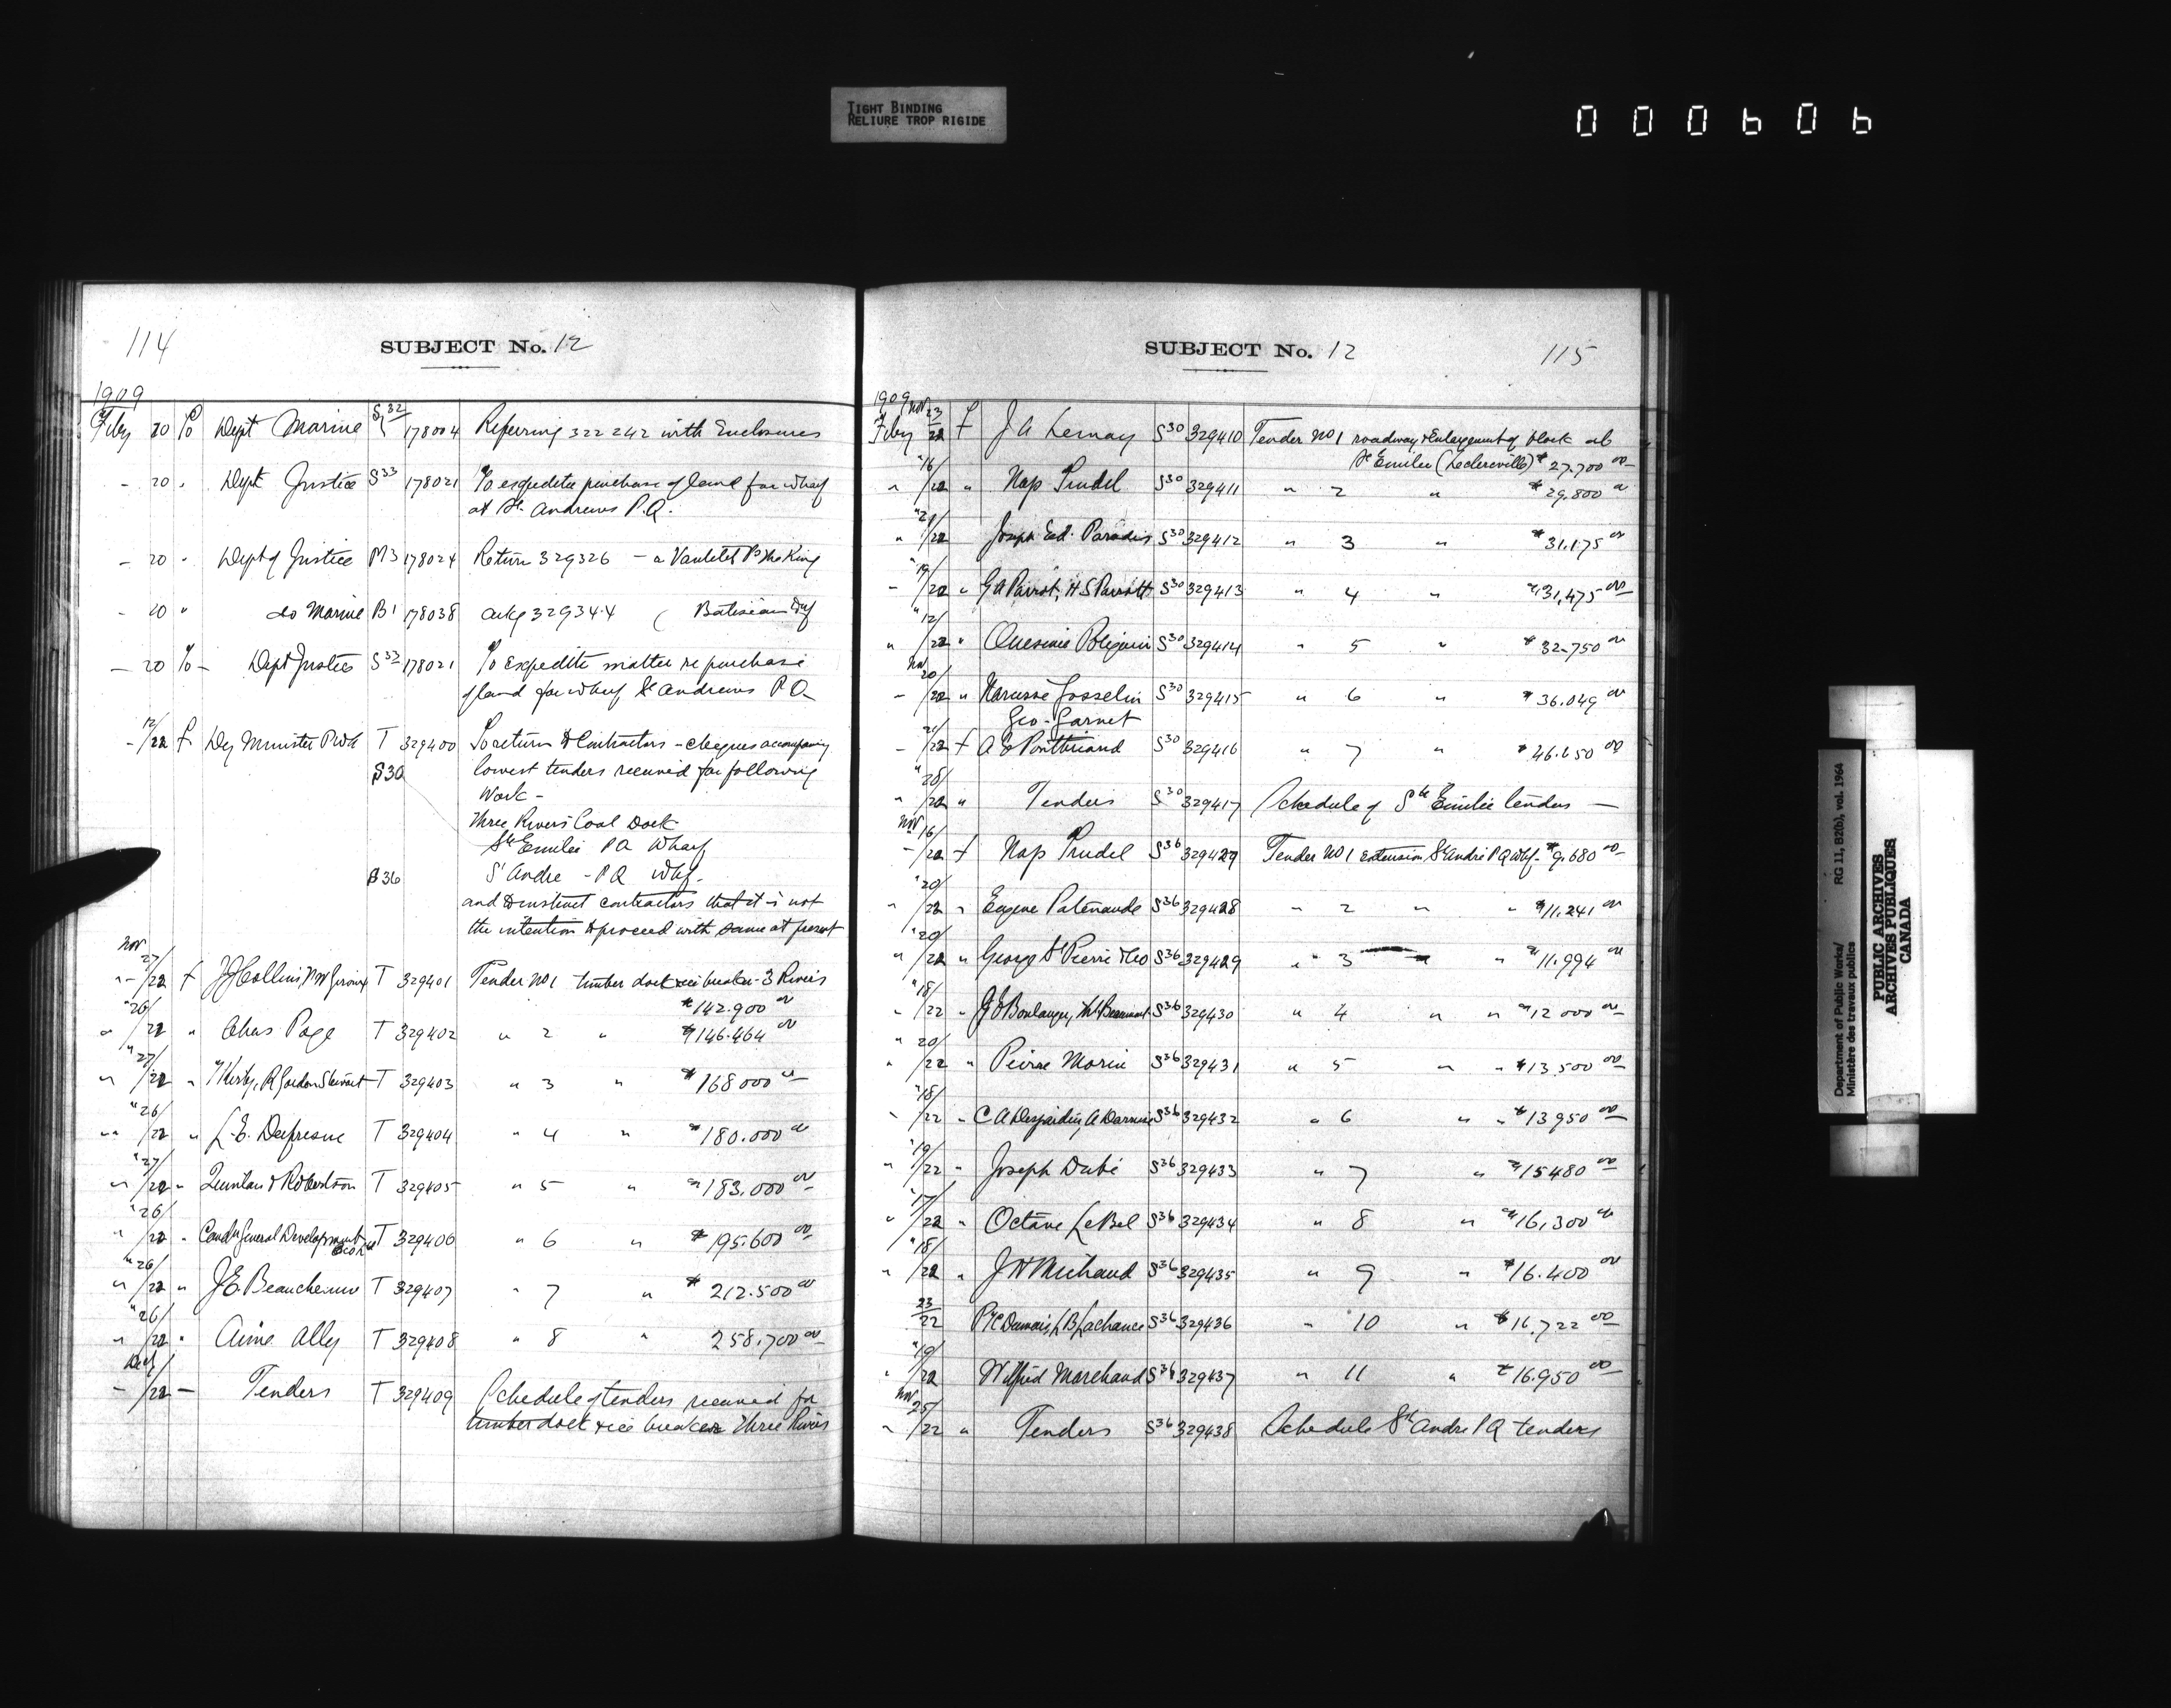 TIGHT BINDING
RELIURE TROP RIGIDE
000606
114
SUBJECT No. 12
1909
Feby 20 To Dept Marine S32 178004 Referring 322242 with Enclosures
- 20 " Dept Justice S33 178021 To expedite purchase of land for wharf
at St. Andrews P.Q.
- 20 " Dept of Justice M3 178024 Return 329326 - a Vautelet vs The King
- 20 " do Marine B1 178038 ackg 329344 ( Batiscan Whf
- 20 To - Dept Justice S33 178021 To Expedite matter re purchase
of land for wharf St Andrews P.Q
- 12/22 f Dy Minister PWk T 329400 To return to Contractors - cheques accompanying
S30 lowest tenders received for following
work -
Three Rivers Coal Dock
Ste Emilie PQ Wharf
B36 St Andre - PQ Whf -
and to instruct contractors that it is not
the intention to proceed with same at present
Nov
"- 27/22 f J J Collins, T 329401 Tender No 1 timber dock & ice breaker - 3 Rivers
$142.900 00
" 26/22 " Chas Page T 329402 " 2 " $146.464 00
" 27/22 " Kirby, R Gordon Stewart T 329403 " 3 " $168000 00
" 26/22 " L. E. Dufresne T 329404 " 4 " $180.000 00
" 27/22 " Quinlan & Robertson T 329405 " 5 " $183.000 00
" 26/22 " Canda General Development Co Ltd T 329406 " 6 " $195.600 00
" 26/22 " J. E. Beauchemin T 329407 " 7 " $212.500 00
" 26/22 " Aime Ally T 329408 " 8 " 258.700 00
Dec
- 1/22 - Tenders T 329409 Schedule of tenders received for
timber dock & ice breaker Three Rivers
SUBJECT No. 12
115
1909
Feby Nov 23/22 f J A Lemay S30 329410 Tender No 1 roadway & Enlargement of block at
Ste Emilie (Leclercville) $27.700 00
" 16/22 " Nap Trudel S30 329411 " 2 " $29.800 00
" 21/22 Joseph Ed. Paradis S30 329412 " 3 " $31.175 00
- 19/22 " G A Parrot, H S Parrott S30 329413 " 4 " $31,475 00
" 12/22 " Onesime Poliquin S30 329414 " 5 " $32.750 00
Nov
- 20/22 " Narcisse Gosselin S30 329415 " 6 " $36.049 00
Geo. Garnet
- 21/22 f A E Pontbriand S30 329416 " 7 " $46.650 00
" 28/22 " Tenders S30 329417 Schedule of Ste Emilie tenders -
Nov
- 16/22 f Nap Trudel S36 329427 Tender No 1 extension St André PQ Whf - $9.680 00
" 20/22 " Eugene Patenaude S36 329428 " 2 " " $11.241 00
" 20/22 " George St Pierre & Co S36 329429 " 3 " " $11.994 00
" 18/22 " J O Boulanger, S36 329430 " 4 " " $12 000 00
" 20/22 " Peirre Morin S36 329431 " 5 " " $13.500 00
" 18/22 " C A Desjardins, S36 329432 " 6 " " $13950 00
" 19/22 " Joseph Dubé S36 329433 " 7 " $15480 00
" 17/22 " Octave LeBel S36 329434 " 8 " $16,300 00
" 18/22 " J H Michaud S36 329435 " 9 " $16.400 00
23/22 P C Dumais, L B Lachance S36 329436 " 10 " $16,722 00
" 19/22 Wilfrid Marchand S36 329437 " 11 " $16.950 00
Nov
" 25/22 " Tenders S36 329438 Schedule St Andre PQ tenders
Department of Public Works/ RG 11, B2(b), vol. 1964
Ministère des travaux publics
PUBLIC ARCHIVES
ARCHIVES PUBLIQUES
CANADA